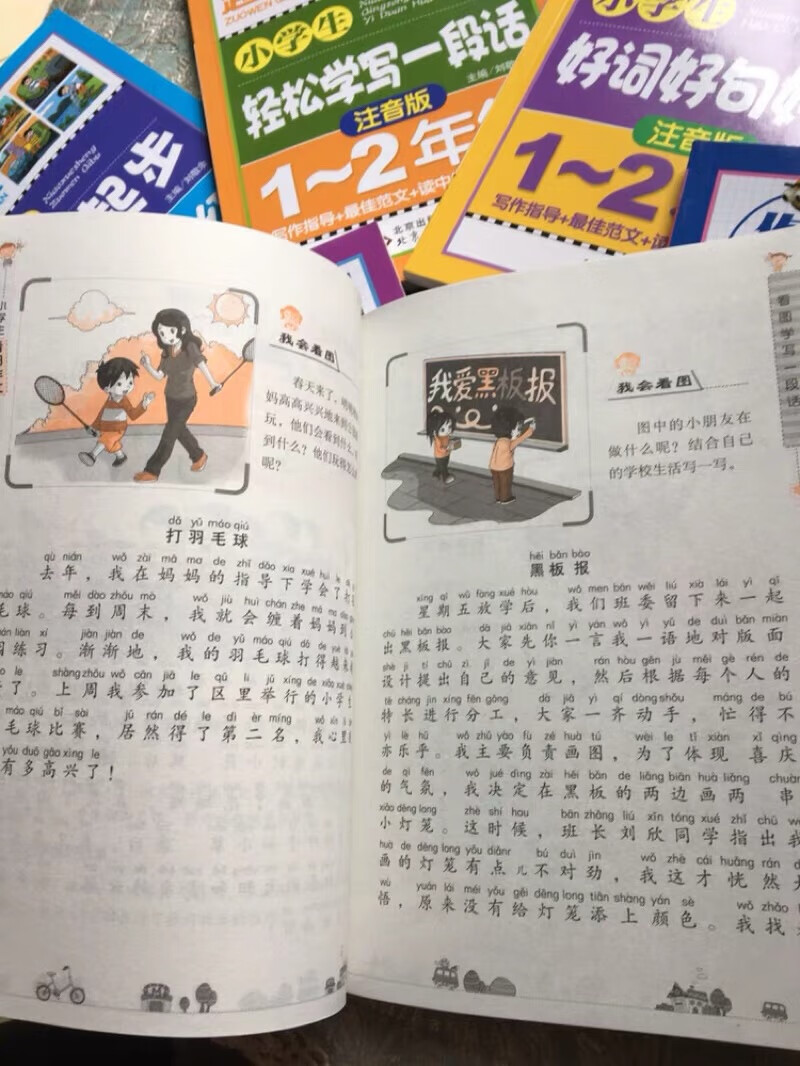 小学生
轻松学写一段话
主编
注音版
1~2年级
写作指导+最佳范文+读中
小学生
好词好句好
注音版
1~2
写作指导+最佳范文+读
我会看图
春天来了，
妈高高兴兴地来到
玩，他们会看到什么，
到什么？他们玩得怎么
呢？
dǎ yǔ máo qiú
打羽毛球
qù nián wǒ zài mā ma de zhǐ dǎo xia xué huì le dǎ
去年，我在妈妈的指导下学会了打
máo qiú měi dào zhōu mò wǒ jiù huì chán zhe mā ma dào
毛球。每到周末，我就会缠着妈妈到
liàn xí jiàn jiàn de wǒ de yǔ máo qiú dǎ de yuè
练习。渐渐地，我的羽毛球打得越来
le shàng zhōu wǒ cān jiā le qū li jǔ xíng de xiǎo xué
了。上周我参加了区里举行的小学
máo qiú bǐ sài jū rán dé le dì èr míng wǒ xīn li
毛球比赛，居然得了第二名，我心里
yǒu duō gāo xìng le
有多高兴了！
我爱黑板报
我会看图
图中的小朋友在
做什么呢？结合自己
的学校生活写一写。
看图学写一段话
hēi bǎn bào
黑板报
xīng qī wǔ fàng xué hòu wǒ men bān wěi liú xià lái yì qǐ
星期五放学后，我们班委留下来一起
chū hēi bǎn bào dà jiā xiān nǐ yì yán wǒ yì yǔ de duì bǎn miàn
出黑板报。大家先你一言我一语地对版面
shè jì tí chū zì jǐ de yì jiàn rán hòu gēn jù měi gè rén de
设计提出自己的意见，然后根据每个人的
tè cháng jìn xíng fēn gōng dà jiā yì qí dòng shǒu máng de bú
特长进行分工，大家一齐动手，忙得不
yì lè hū wǒ zhǔ yào fù zé huà tú wèi le tǐ xiàn xǐ qìng
亦乐乎。我主要负责画图，为了体现喜庆
de qì fēn wǒ jué dìng zài hēi bǎn de liǎng biān huà liǎng chuàn
的气氛，我决定在黑板的两边画两串
xiǎo dēng long zhè shí hou bān zhǎng liú xīn tóng xué zhǐ chū wǒ
小灯笼。这时候，班长刘欣同学指出我
huà de dēng long yǒu diǎnr bú duì jìn wǒ zhè cái huǎng rán dà
画的灯笼有点儿不对劲，我这才恍然大
wù yuán lái méi yǒu gěi dēng long tiān shàng yán sè wǒ zhǎo
悟，原来没有给灯笼添上颜色。我找